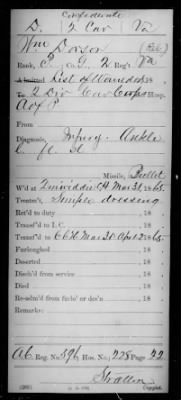 Confederate
D. 2 Cav Va
Wm Dorser
Rank, Co. Reg't Va
Admitted List of Wounded
To 2 Div Cav Corps
A of P
From
Diagnosis, Injury. Ankle
Missile, Bullet
W'd at Dinwiddie C.H. Mar 31, 1865.
Treatm't, Simple dressing
Ret'd to duty , 18 .
Transf'd to I. C. , 18 .
Transf'd to , 1865.
Furloughed , 18 .
Deserted , 18 .
Disch'd from service , 18 .
Died , 18 .
Re-adm'd from furlo' or des'n , 18 .
Remarks:
Reg. No. 396 Hos. No. 228 Page 22
Stratton
Copyist.